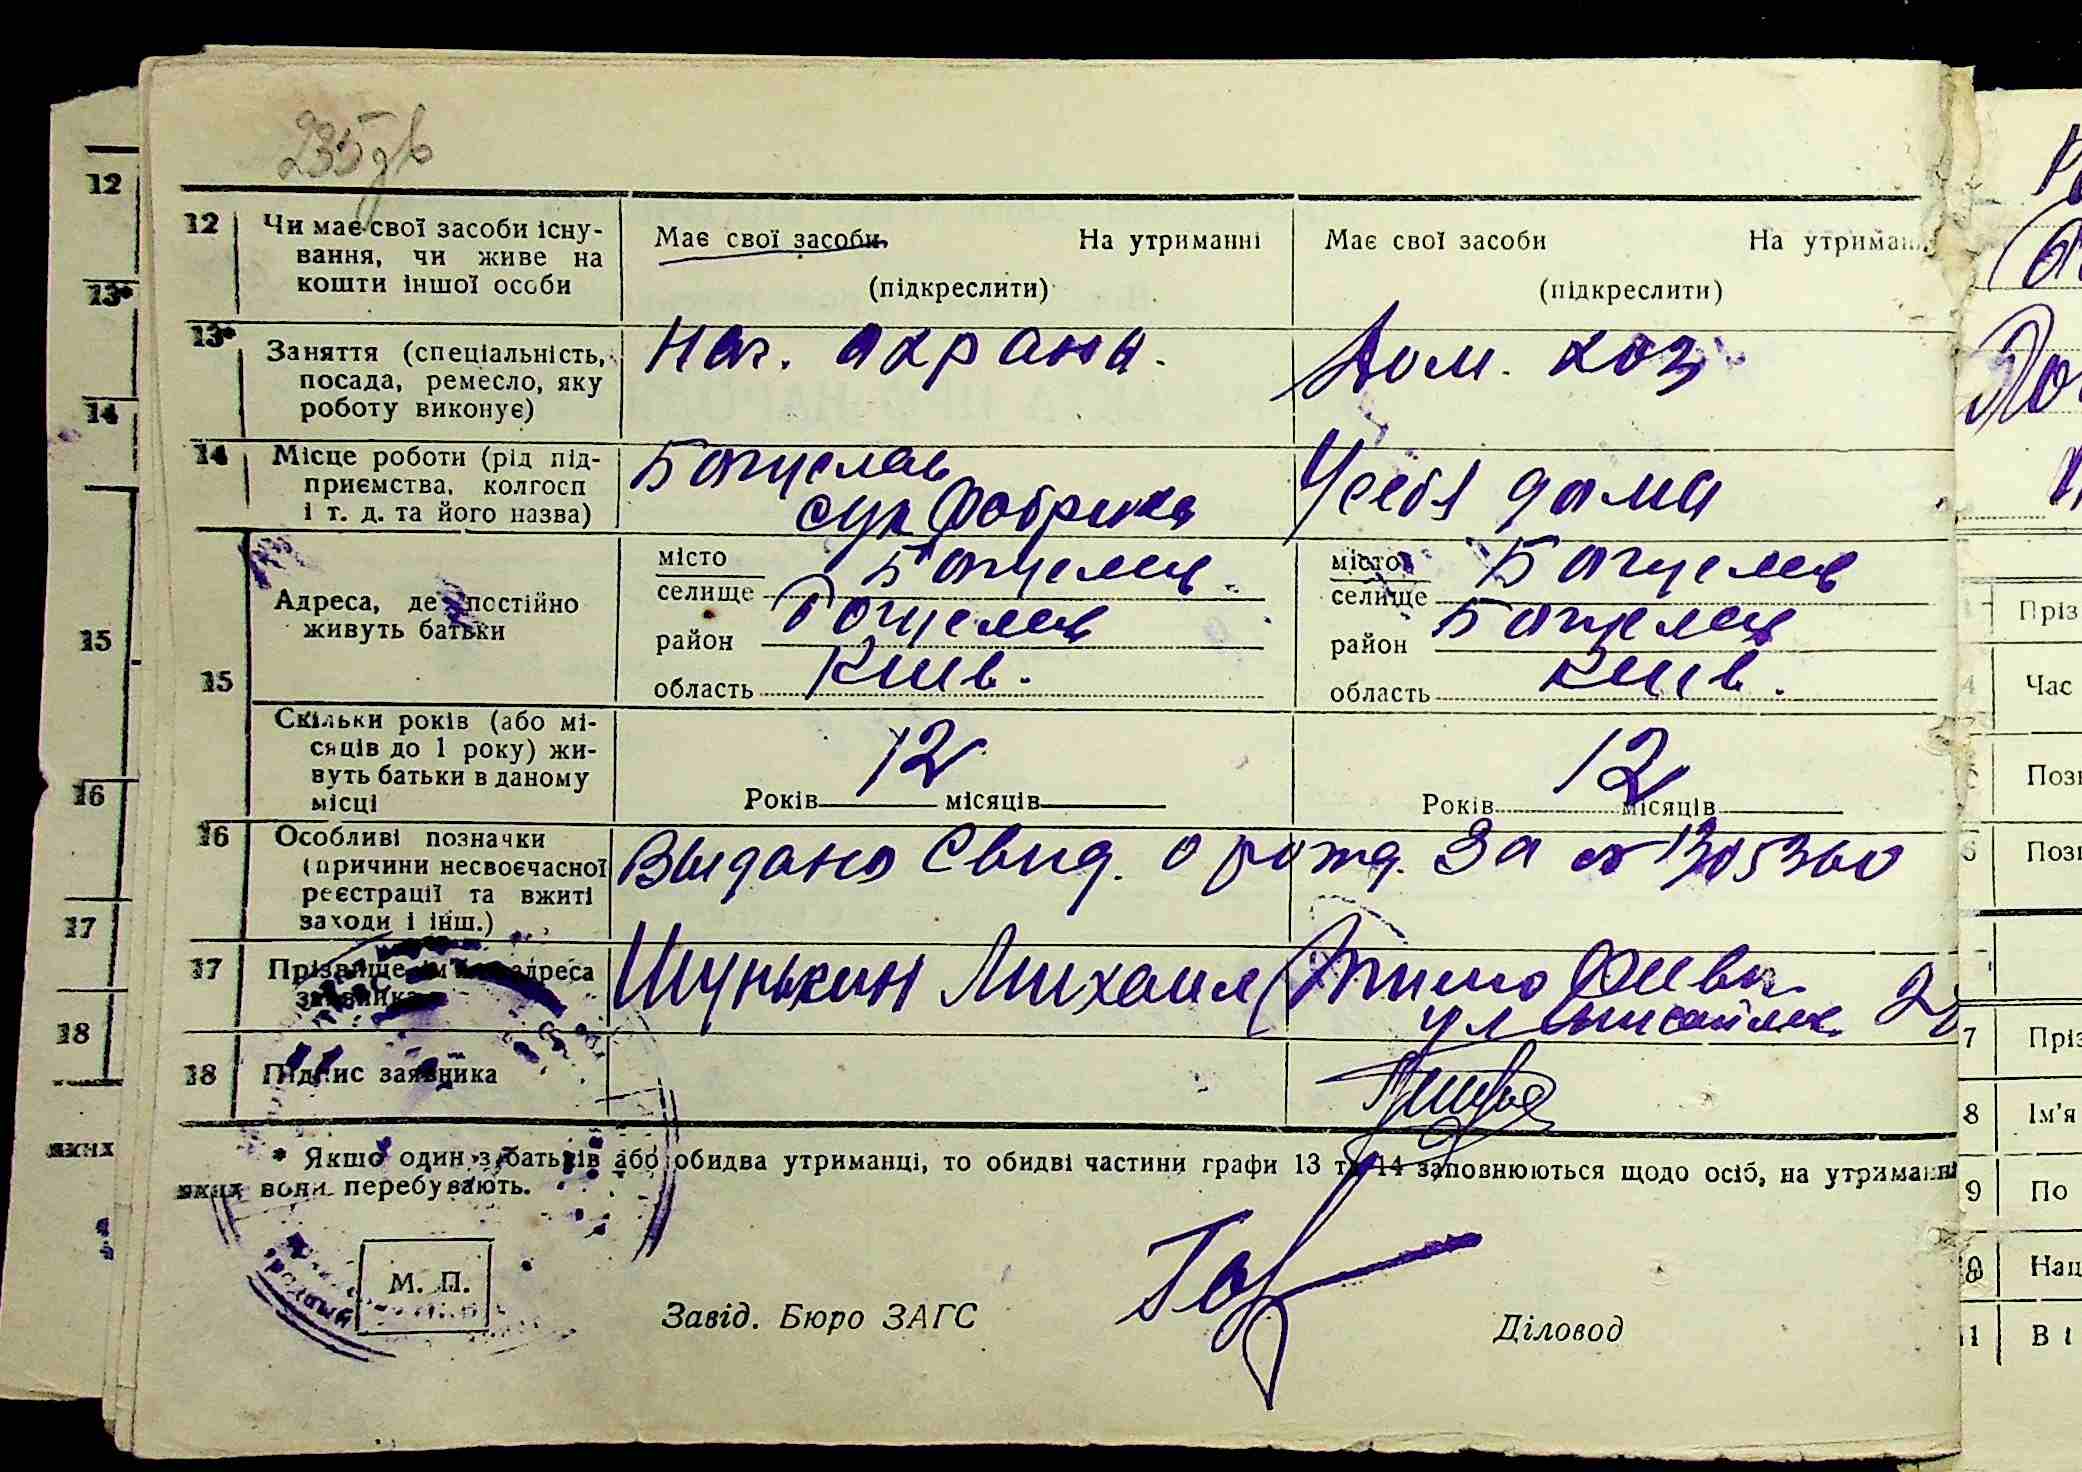 235зв
12 Чи має свої засоби існу-
вання, чи живе на
кошти іншої особи
Має свої засоби На утриманні
(підкреслити)
Має свої засоби На утриман
(підкреслити)
13* Заняття (спеціальність,
посада, ремесло, яку
роботу виконує)
Нач. охрани.
Дом. хоз
14 Місце роботи (рід під-
приємства, колгосп
і т. д. та його назва)
Богуслав
сук фабрика
У себя дома
15 Адреса, де постійно
живуть батьки
місто
селище Богуслав.
район Богуслав
область Київ.
місто
селище Богуслав
район Богуслав
область Київ.
Скільки років (або мі-
сяців до 1 року) жи-
вуть батьки в даному
місці
Років 12 місяців
Років 12 місяців
16 Особливі позначки
(причини несвоєчасної
реєстрації та вжиті
заходи і інш.)
Выдано Свид. о рожд. За № 1305360
17 Прізвище ім'я адреса
заявника
Шунькин Михаил Тимофиев
ул
18 Підпис заявника
* Якщо один з батьків або обидва утриманці, то обидві частини графи 13 та 14 заповнюються щодо осіб, на утриманні
яких вони перебувають.
М. П.
Завід. Бюро ЗАГС
Діловод
12
13*
14
15
16
17
18
яких
Пріз
Час
Позн
Позн
7 Пріз
8 Ім'я
9 По
Нац